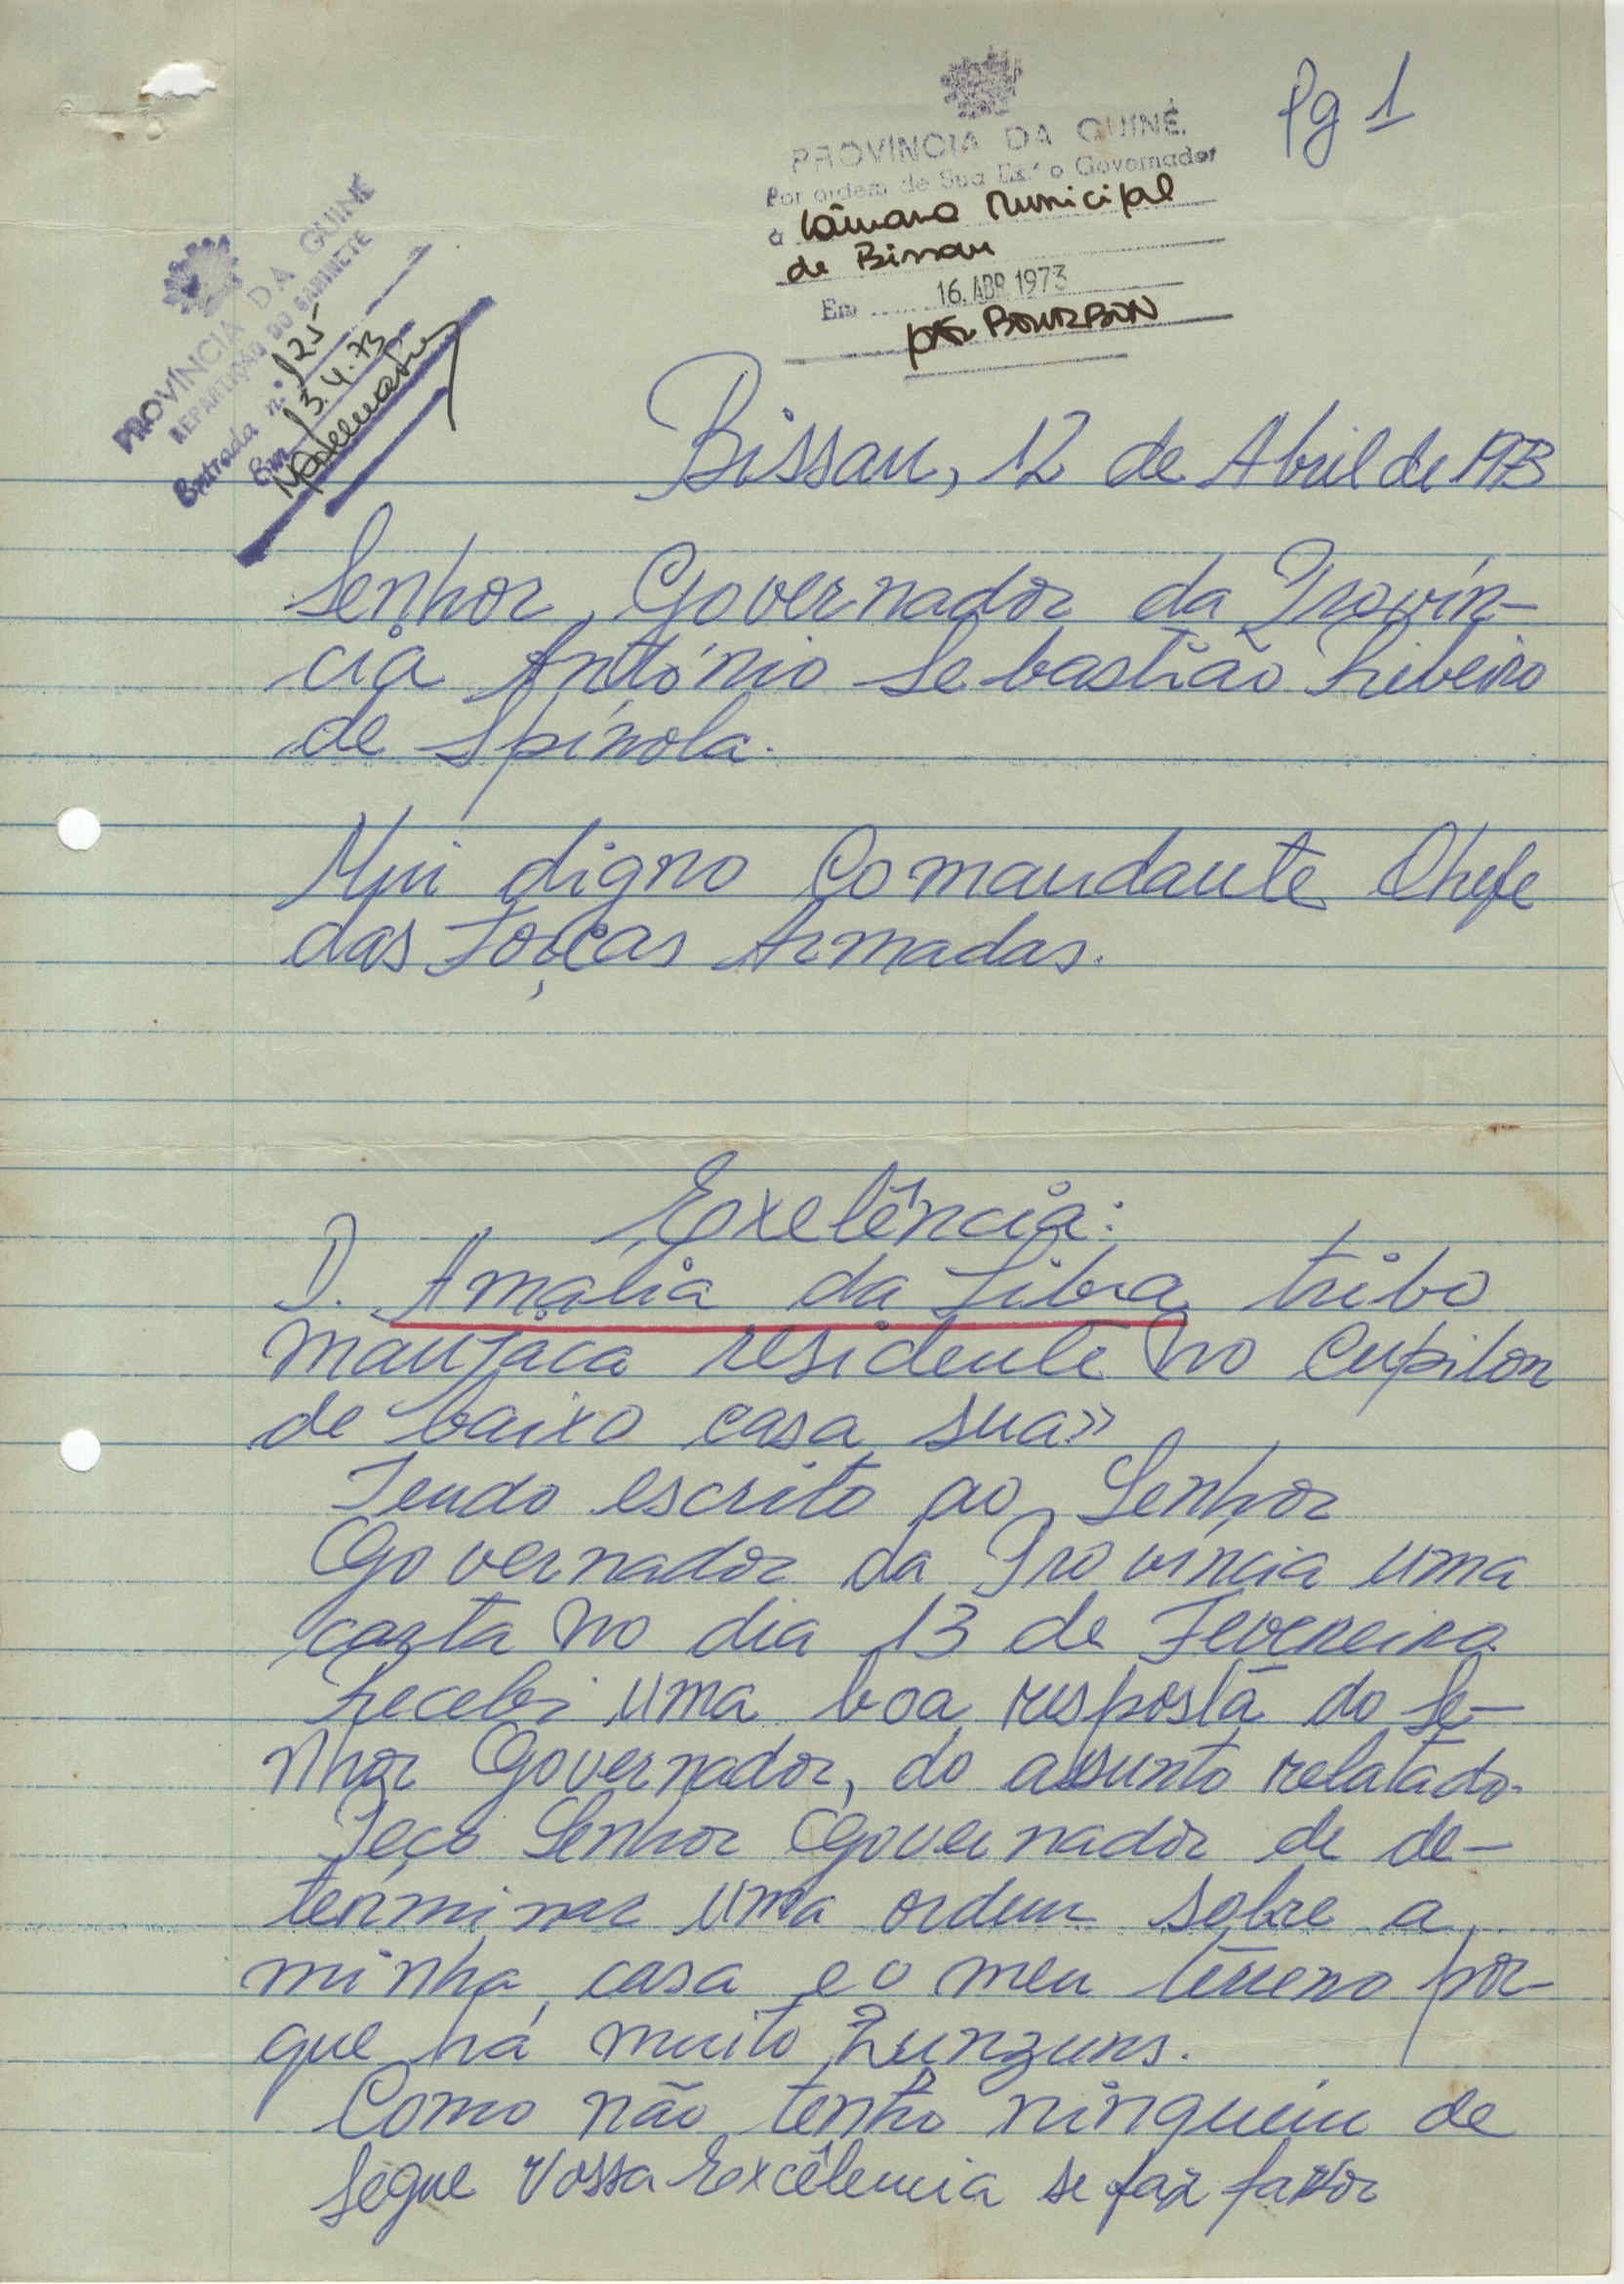 Pg 1
PROVÍNCIA DA GUINÉ
Por ordem de Sua Ex.ª o Governador
à Câmara Municipal
de Bissau
Em 16. ABR 1973
BOURBON
PROVÍNCIA DA GUINÉ
REPARTIÇÃO DO GABINETE
Entrada n.º 125
Em 13.4.73
Bissau, 12 de Abril de 1973
Senhor Governador da Provín-
cia António Sebastião Ribeiro
de Spínola.
Mui digno Comandante Chefe
das Forças Armadas.
Exelência:
D. Amalia da Silva tribo
manjaca residente no Cupilon
de baixo casa sua»
Tendo escrito ao Senhor
Governador da Provincia uma
carta no dia 13 de Fevereiro
recebi uma boa resposta do Se-
nhor Governador, do assunto relatado.
Peço Senhor Governador de de-
terminar uma ordem sobre a
minha casa e o meu terreno por-
que há muito Zunzuns.
Como não tenho ninguém de
segue Vossa Excêlencia se faz favor